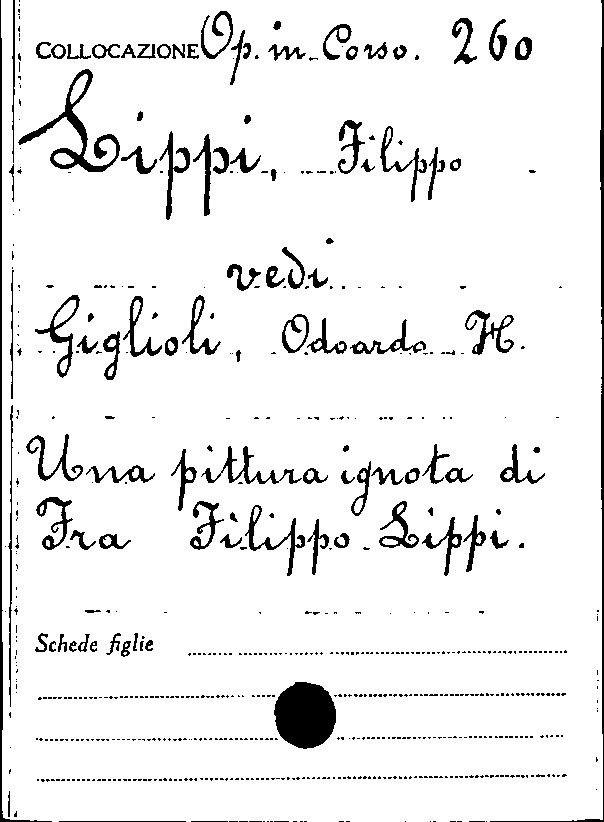 COLLOCAZIONE Op. in Corso. 260
Lippi, Filippo
vedi
Giglioli, Odoardo H.
Una pittura ignota di
Fra Filippo Lippi.
Schede figlie